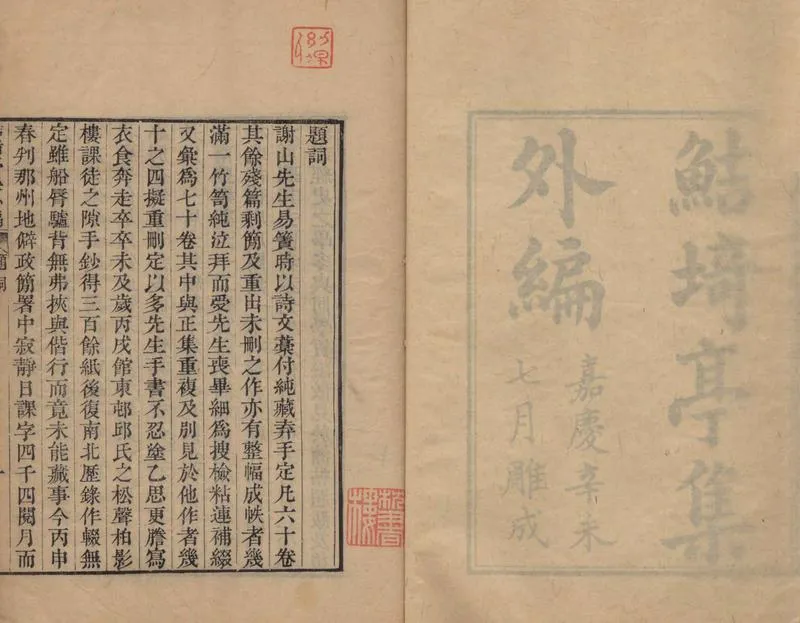 鮚埼亭集
外編
嘉慶辛未
七月雕成
題詞
謝山先生易簀時以詩文藁付純藏弆手定凡六十卷
其餘殘篇剩簡及重出未刪之作亦有整幅成帙者幾
滿一竹笥純泣拜而受先生喪畢細爲搜檢粘連補綴
又彙爲七十卷其中與正集重複及別見於他作者幾
十之四擬重刪定以多先生手書不忍塗乙思更謄寫
衣食奔走卒卒未及歲丙戌館東邨邱氏之松聲柏影
樓課徒之隙手鈔得三百餘紙後復南北歷錄作輟無
定雖船脣驢背無弗挾與偕行而竟未能蕆事今丙申
春判那州地僻政簡署中寂靜日課字四千四閱月而